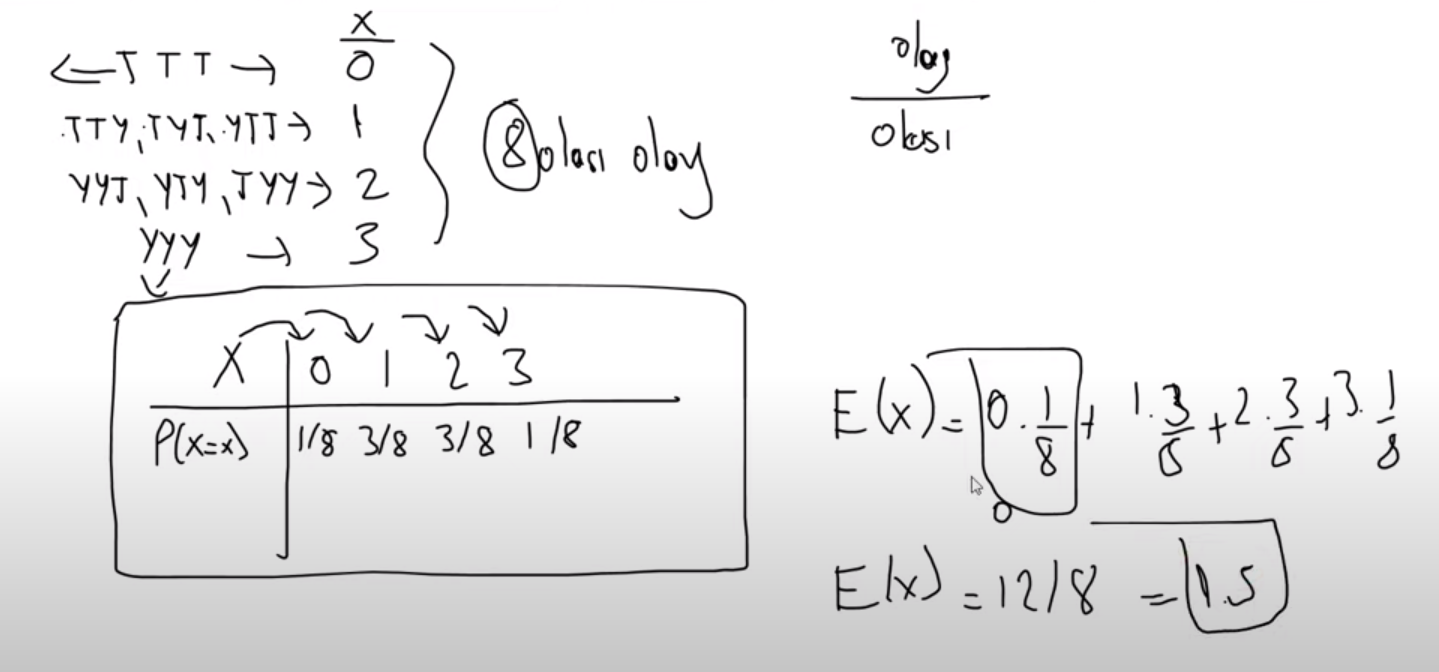 x
← T T T → 0
TTY, TYT, YTT → 1
YYT, YTY, TYY → 2
YYY → 3
8 olası olay
olay
olası
X 0 1 2 3
P(X=x) 1/8 3/8 3/8 1/8
E(x) = 0.1/8 + 1.3/8 + 2.3/8 + 3.1/8
0
E(x) = 12/8 = 1.5